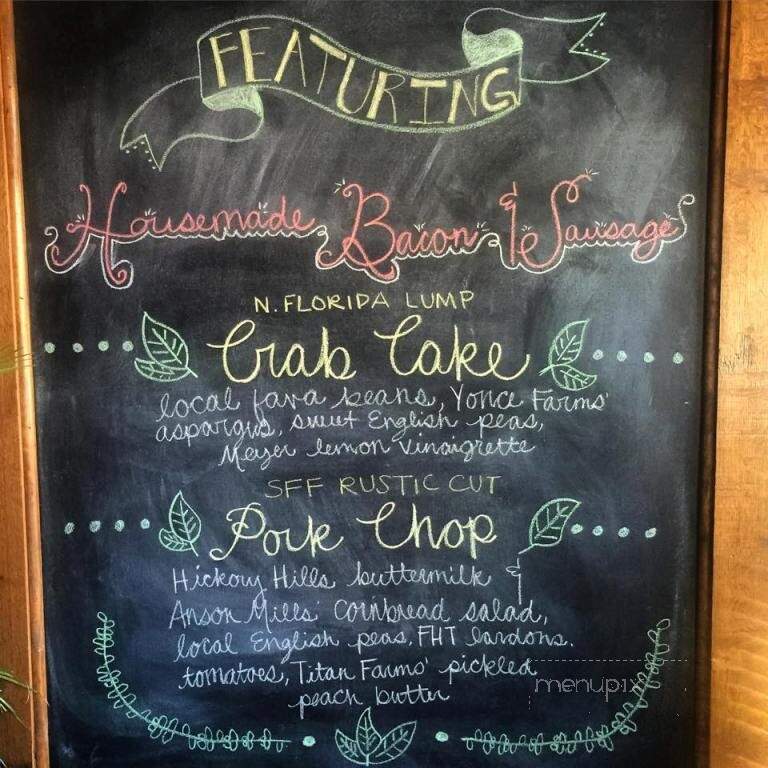 FEATURING
Housemade Bacon & Sausage
N. FLORIDA LUMP
Crab Cake
local fava beans, Yonce Farms'
aspargus, sweet English peas,
Meyer lemon vinaigrette
SFF RUSTIC CUT
Pork Chop
Hickory Hills buttermilk &
Anson Mills' cornbread salad,
local English peas, FHT lardons.
tomatoes, Titan Farms' pickled
peach butter
menupix